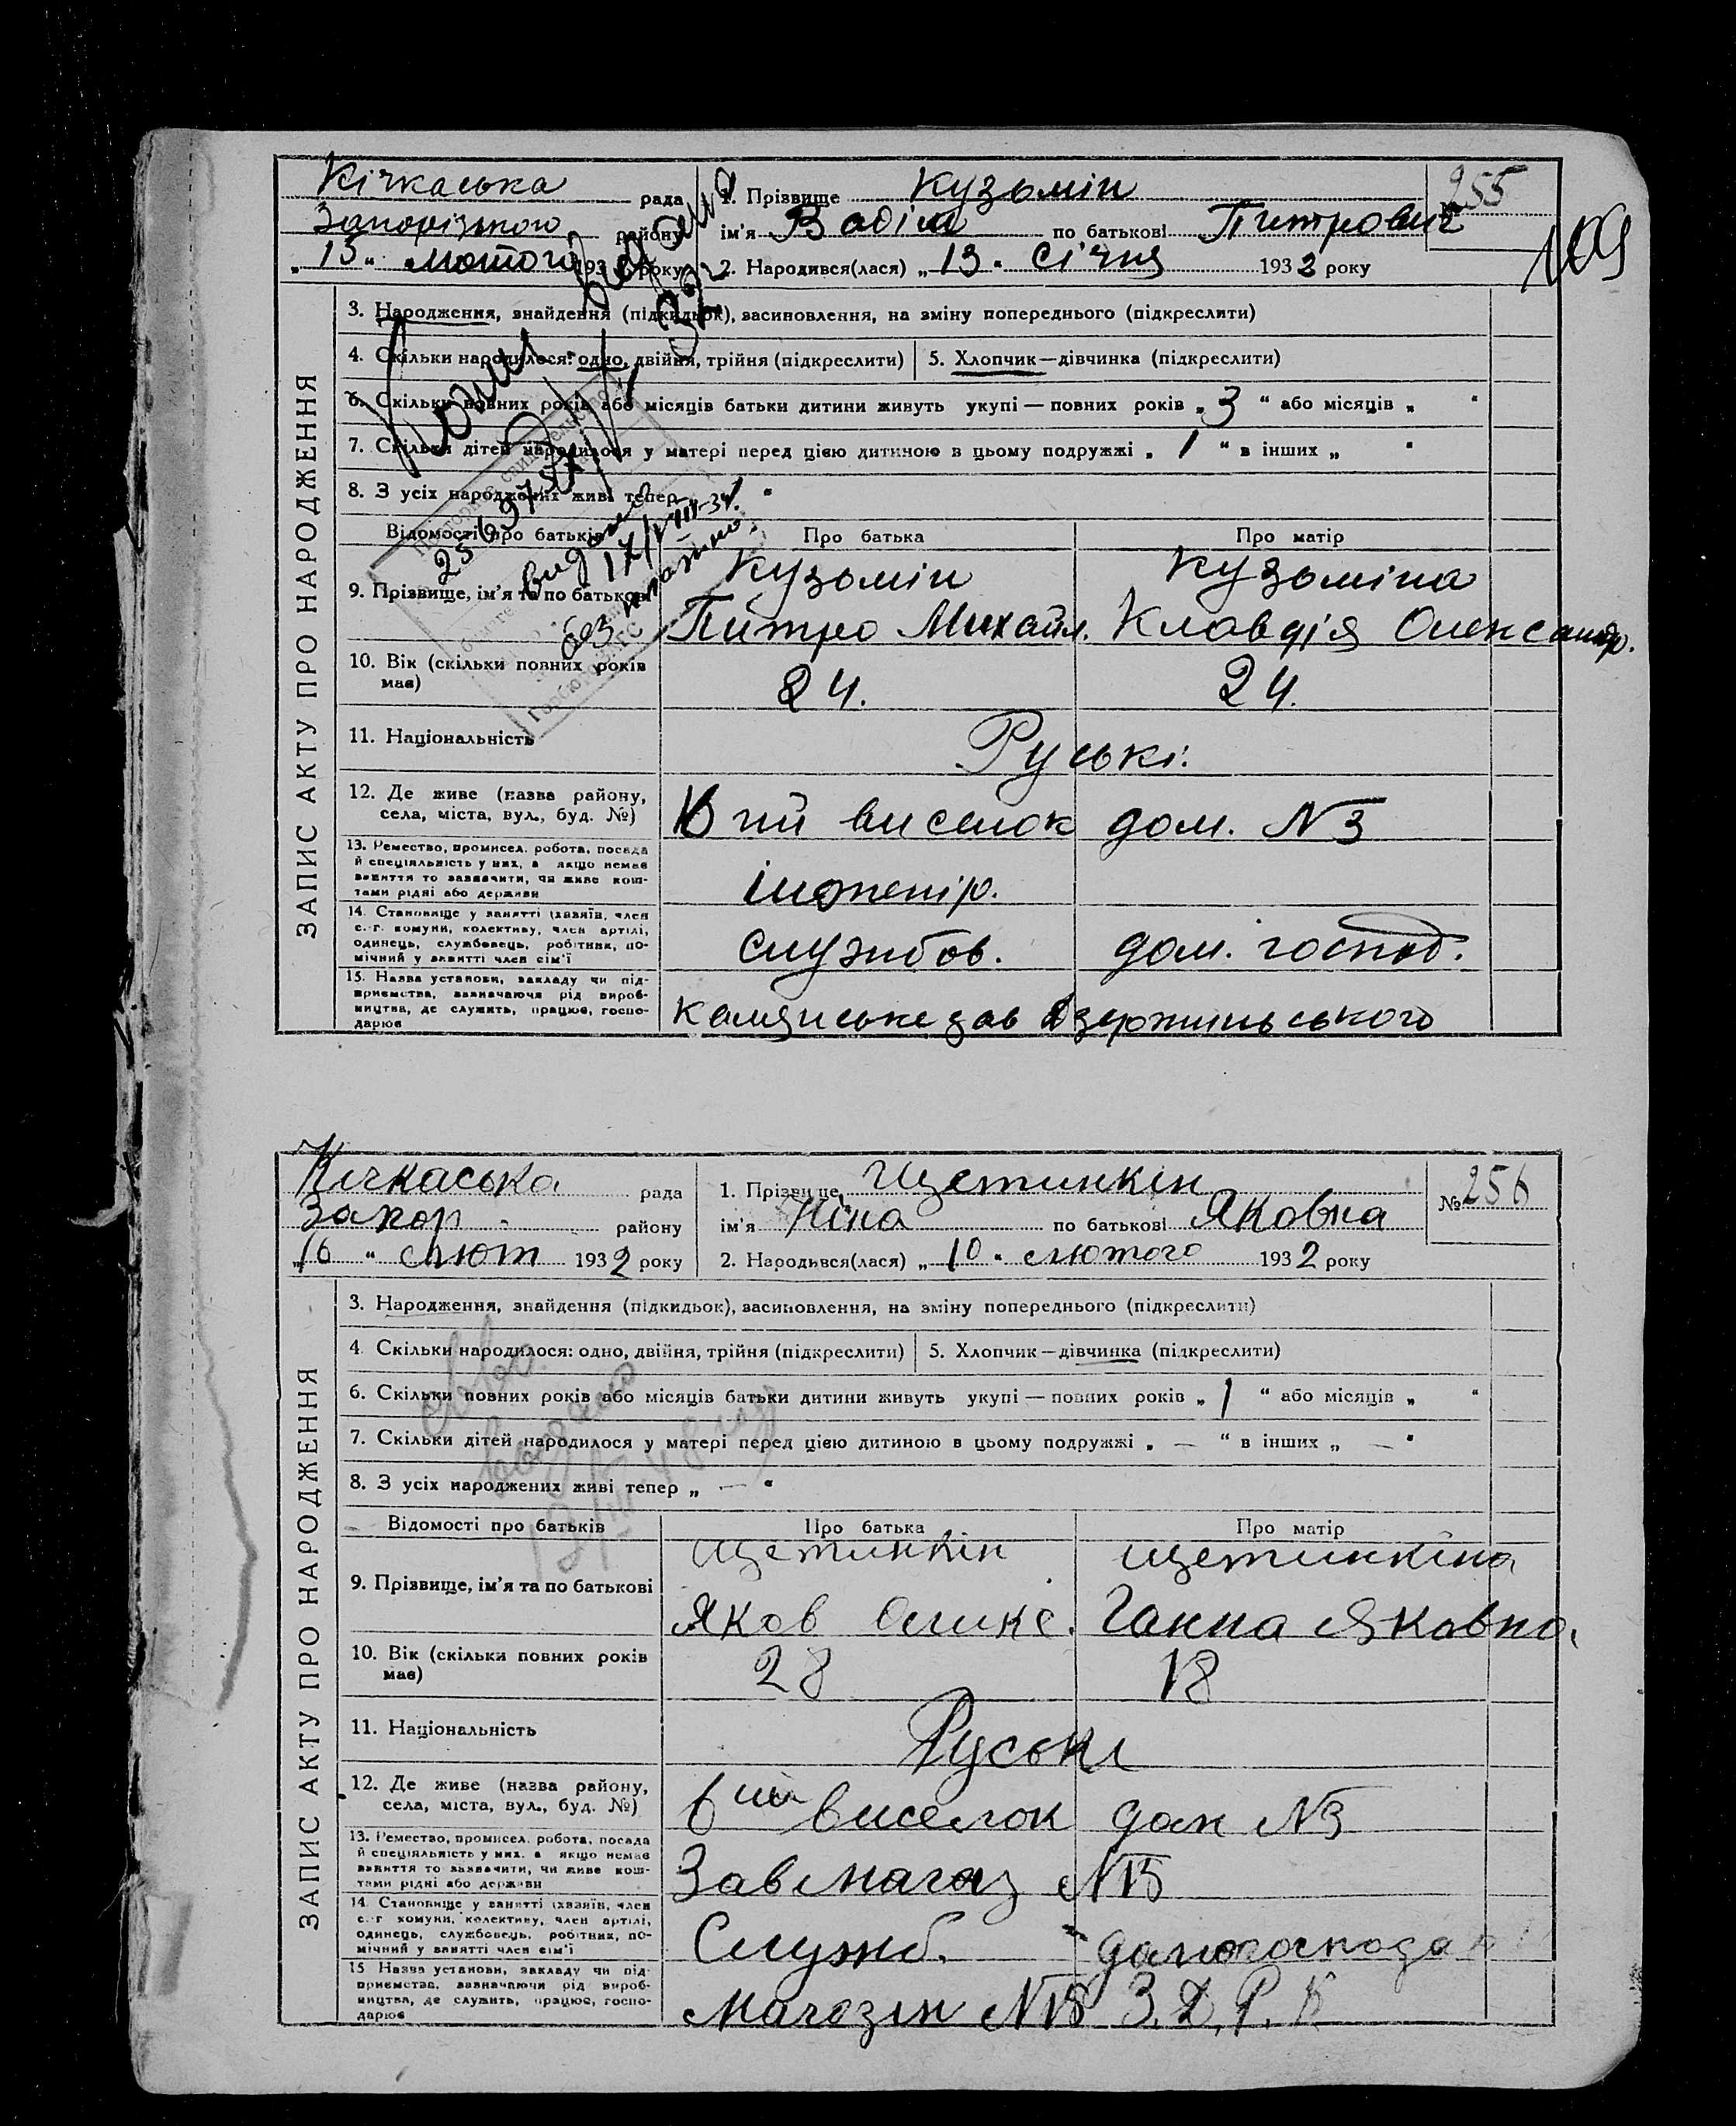 Кічкаська рада
Запорізького району
„15“ лютого 193 року
1. Прізвище Кузьмін
ім’я Вадім по батькові Питрович
2. Народився(лася) „13“ Січня 1932 року
255
109
ЗАПИС АКТУ ПРО НАРОДЖЕННЯ
3. Народження, знайдення (підкидьок), засиновлення, на зміну попереднього (підкреслити)
4. Скільки народилося: одно, двійня, трійня (підкреслити) 5. Хлопчик—дівчинка (підкреслити)
6. Скільки повних років або місяців батьки дитини живуть укупі — повних років „3“ або місяців „ “
7. Скільки дітей народилося у матері перед цією дитиною в цьому подружжі „1“ в інших „ “
8. З усіх народжених живі тепер
Відомості про батьків Про батька Про матір
видано
17/VIII-34
без платно
9. Прізвище, ім’я та по батькові
Кузьмін Кузьміна
Питро Михайл. Клавдія Олександр.
10. Вік (скільки повних років має) 24. 24.
11. Національність Руські.
12. Де живе (назва району, села, міста, вул., буд. №) 6 ий виселок дом. №3
13. Ремество, промисел, робота, посада
й спеціяльність у них, а якщо немає
заняття то зазначити, чи живе кош-
тами рідні або держави
інженір.
14. Становище у занятті (хазяїн, член
с.-г. комуни, колективу, член артілі,
одинець, службовець, робітник, по-
мічний у занятті член сім’ї
службов. дом. господ.
15. Назва установи, закладу чи під-
приємства, зазначаючи рід вироб-
ництва, де служить, працює, госпо-
дарює
Камянське зав Дзержинського
Кічкаська рада
Запор. району
„16“ Лют 1932 року
1. Прізвище Щетинкін
ім’я Ніна по батькові Яковна
2. Народився(лася) „10“ лютого 1932 року
№ 256
ЗАПИС АКТУ ПРО НАРОДЖЕННЯ
3. Народження, знайдення (підкидьок), засиновлення, на зміну попереднього (підкреслити)
4. Скільки народилося: одно, двійня, трійня (підкреслити) 5. Хлопчик—дівчинка (підкреслити)
6. Скільки повних років або місяців батьки дитини живуть укупі — повних років „1“ або місяців „ “
7. Скільки дітей народилося у матері перед цією дитиною в цьому подружжі „—“ в інших „—“
8. З усіх народжених живі тепер „—“
Відомості про батьків Про батька Про матір
9. Прізвище, ім’я та по батькові
Щетинкін Щетинкіна
Яков Оликс. Ганна Яковна.
10. Вік (скільки повних років має) 28 18
11. Національність Руські
12. Де живе (назва району, села, міста, вул., буд. №) 6 ий виселок дом №3
13. Ремество, промисел, робота, посада
й спеціяльність у них, а якщо немає
заняття то зазначити, чи живе кош-
тами рідні або держави
Завмагаз №15
14. Становище у занятті (хазяїн, член
с.-г. комуни, колективу, член артілі,
одинець, службовець, робітник, по-
мічний у занятті член сім’ї
Служб. домогосподар
15. Назва установи, закладу чи під-
приємства, зазначаючи рід вироб-
ництва, де служить, працює, госпо-
дарює
Магазін №15 З.Д.Р.К